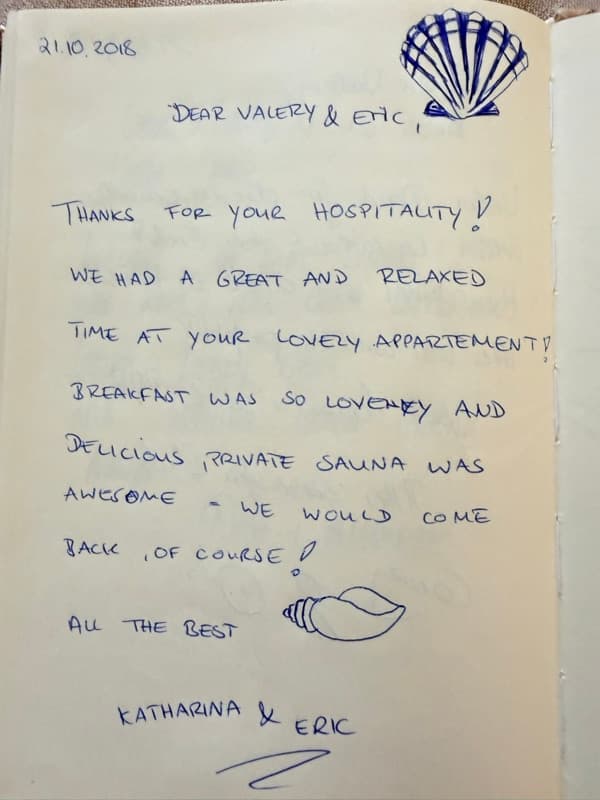 21.10.2018
DEAR VALERY & ERIC,
THANKS FOR YOUR HOSPITALITY!
WE HAD A GREAT AND RELAXED
TIME AT YOUR LOVELY APPARTEMENT!
BREAKFAST WAS SO LOVELEY AND
DELICIOUS, PRIVATE SAUNA WAS
AWESOME - WE WOULD COME
BACK, OF COURSE!
ALL THE BEST
KATHARINA & ERIC